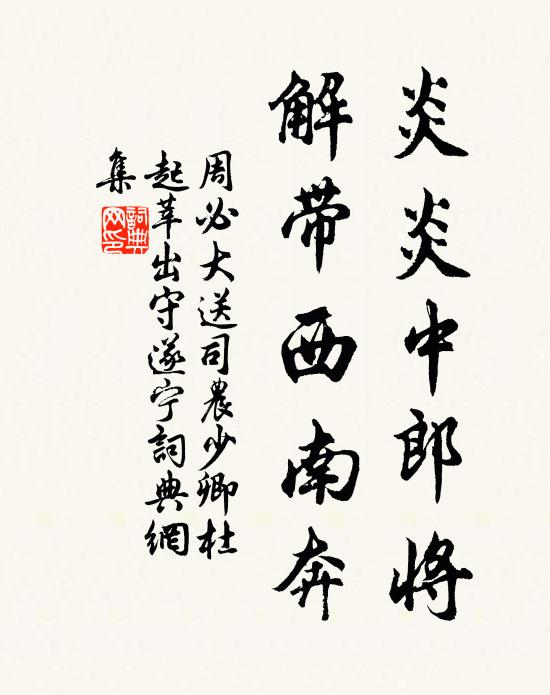 炎炎中郎将
解带西南奔
周必大送司農少卿杜
起莘出守遂宁詞典網
集
詞典网印